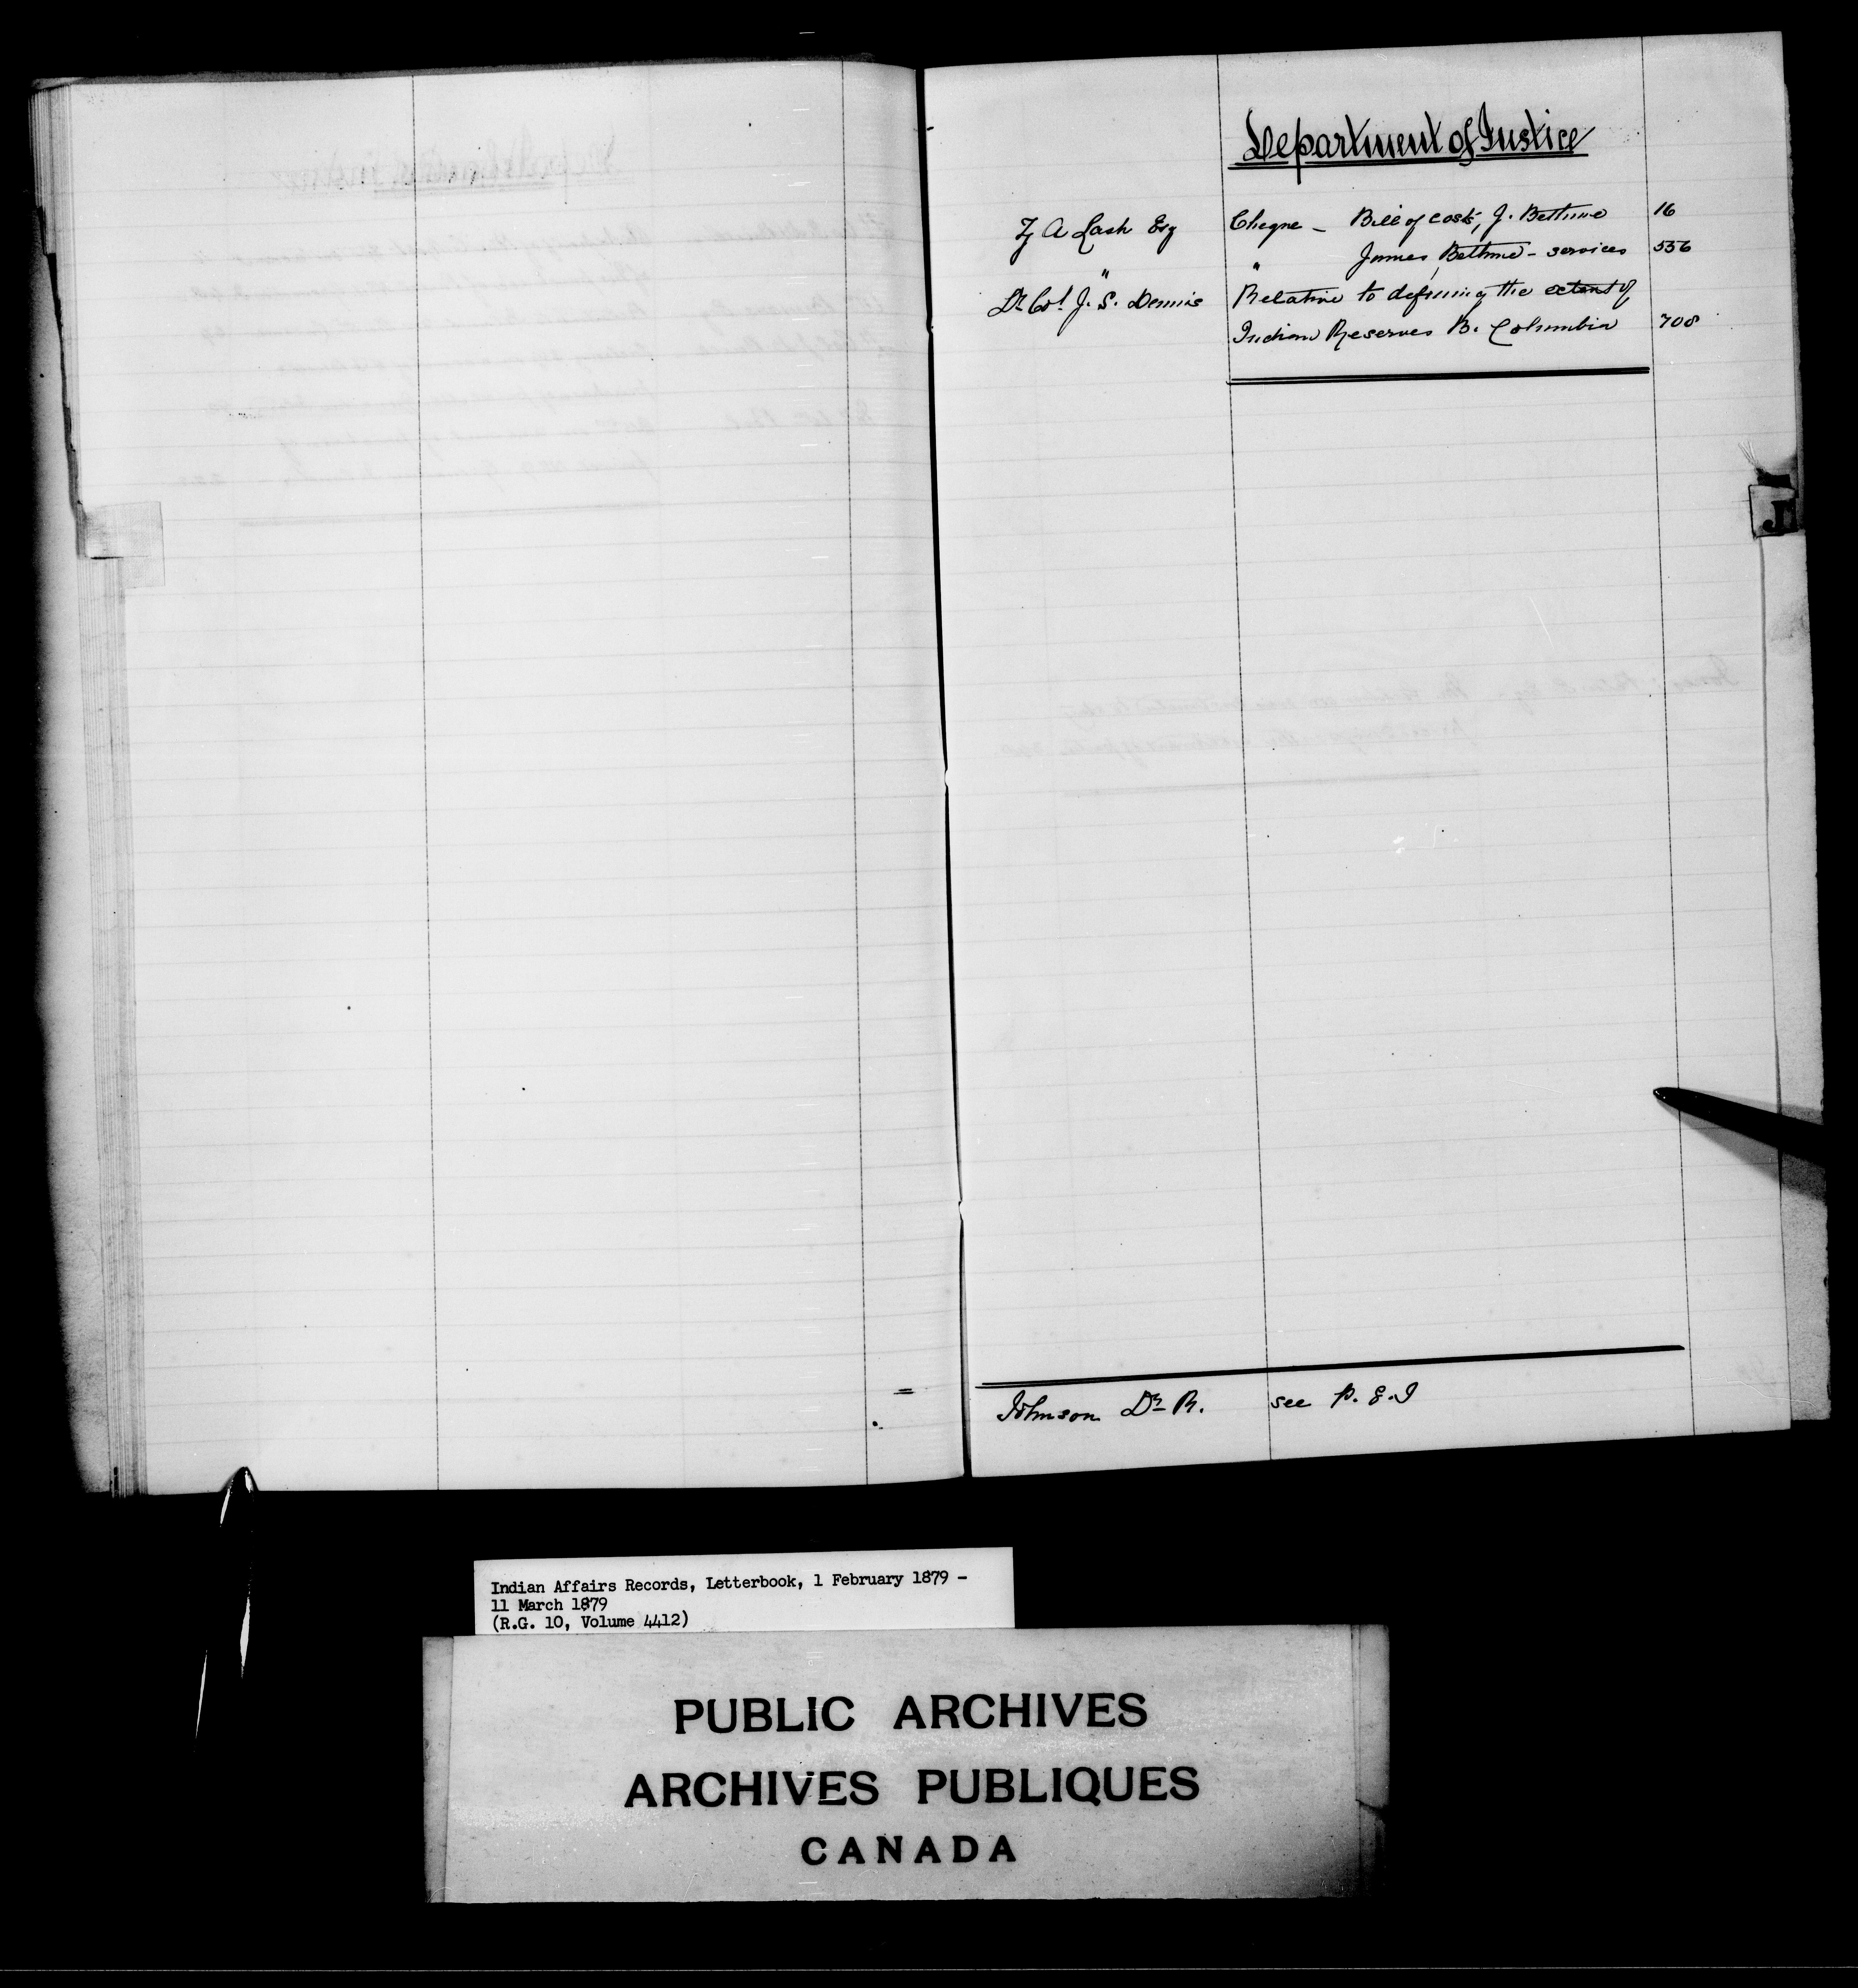 Department of Justice
Z A Lash Esq Cheque – Bill of costs, J. Bethune 16
" " James Bethune – services 556
Dr Col. J. S. Dennis Relative to defining the extent of
Indian Reserves B. Columbia 708
J
Johnson Dr R. see P. E. I
Indian Affairs Records, Letterbook, 1 February 1879 –
11 March 1879
(R.G. 10, Volume 4412)
PUBLIC ARCHIVES
ARCHIVES PUBLIQUES
CANADA